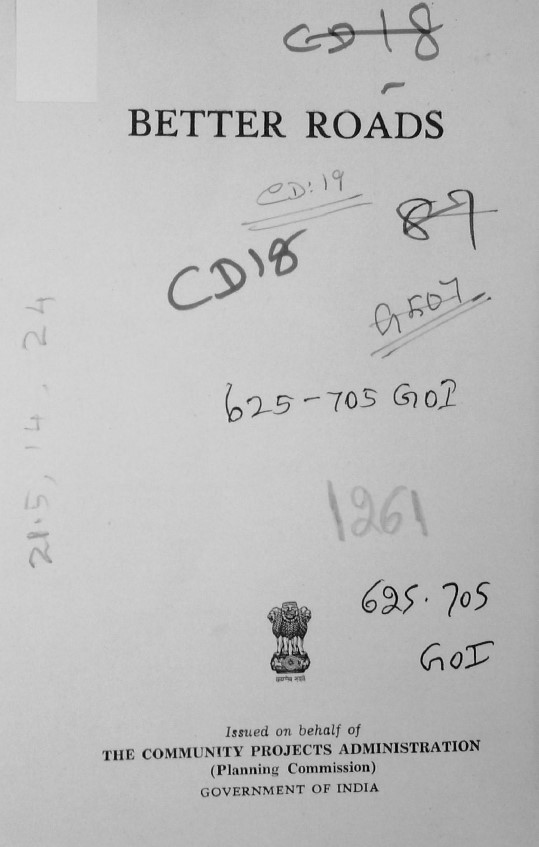 CD18
BETTER ROADS
CD:19
87
CD18
G507
625-705 GOI
21.5, 14, 24
1261
625.705
GOI
सत्यमेव जयते
Issued on behalf of
THE COMMUNITY PROJECTS ADMINISTRATION
(Planning Commission)
GOVERNMENT OF INDIA